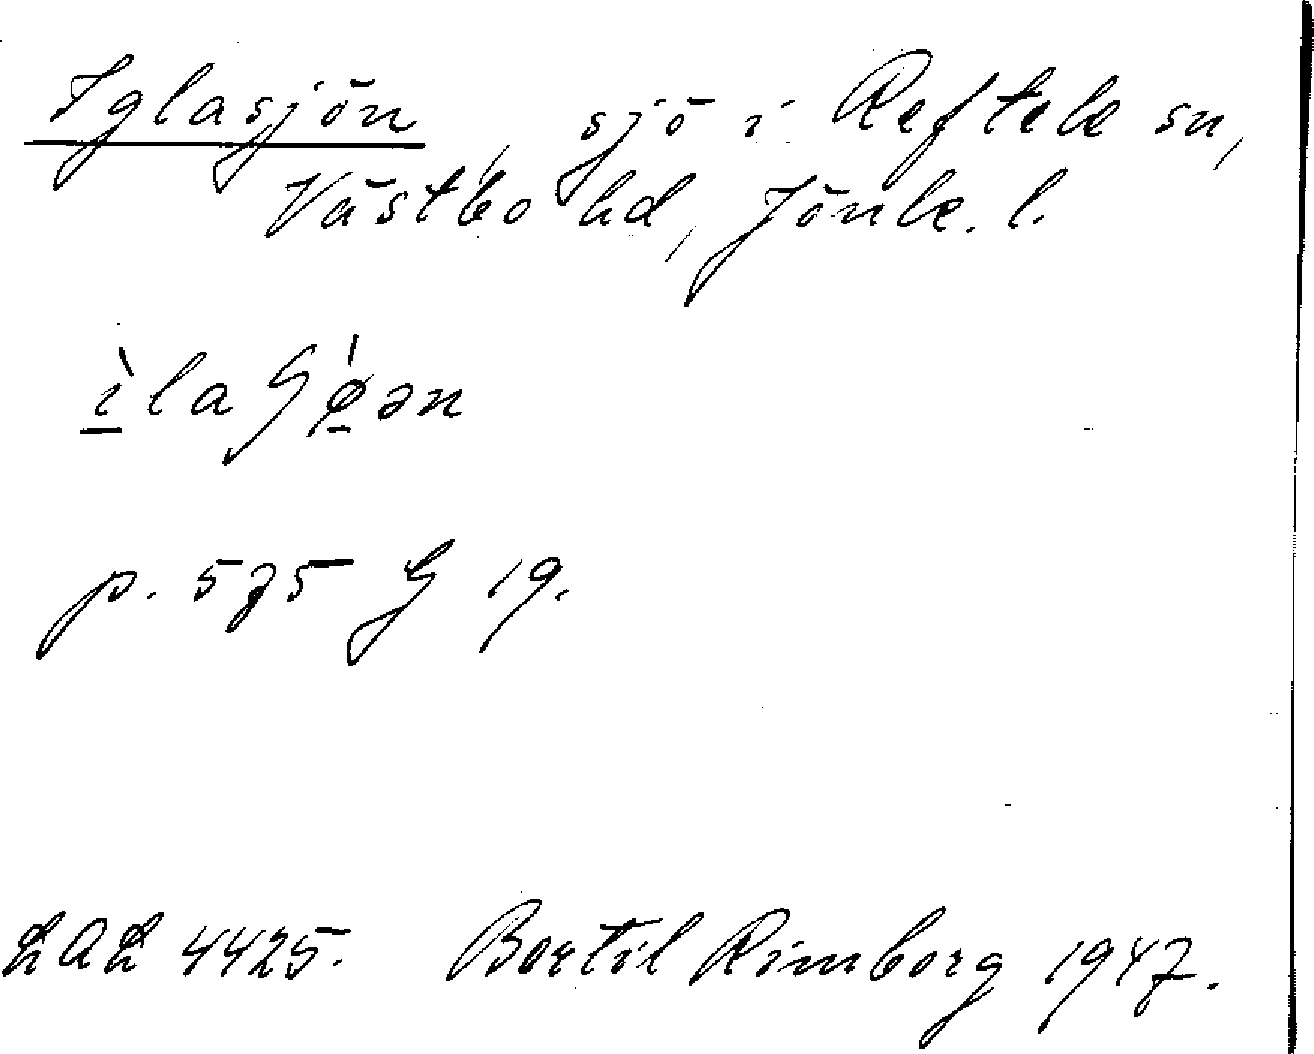 Iglasjön, sjö i Reftele sn,
Västbo hd, Jönk. l.
p. 575 G 19.
LAL 4425. Bertil Rimborg 1947.